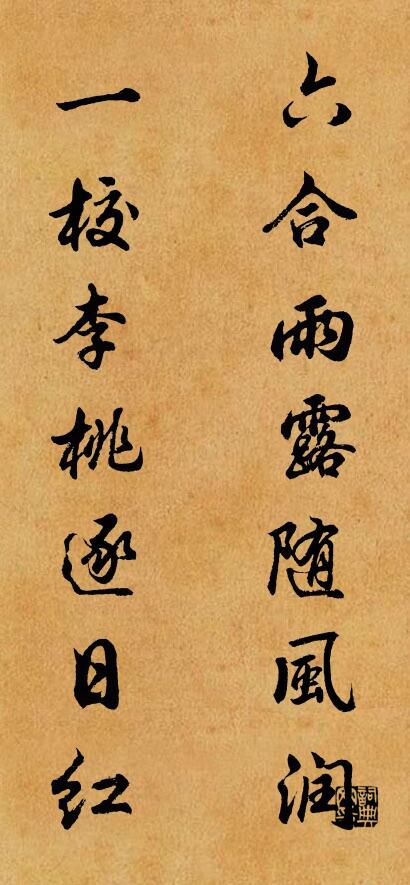 六合雨露随風润
一校李桃逐日红